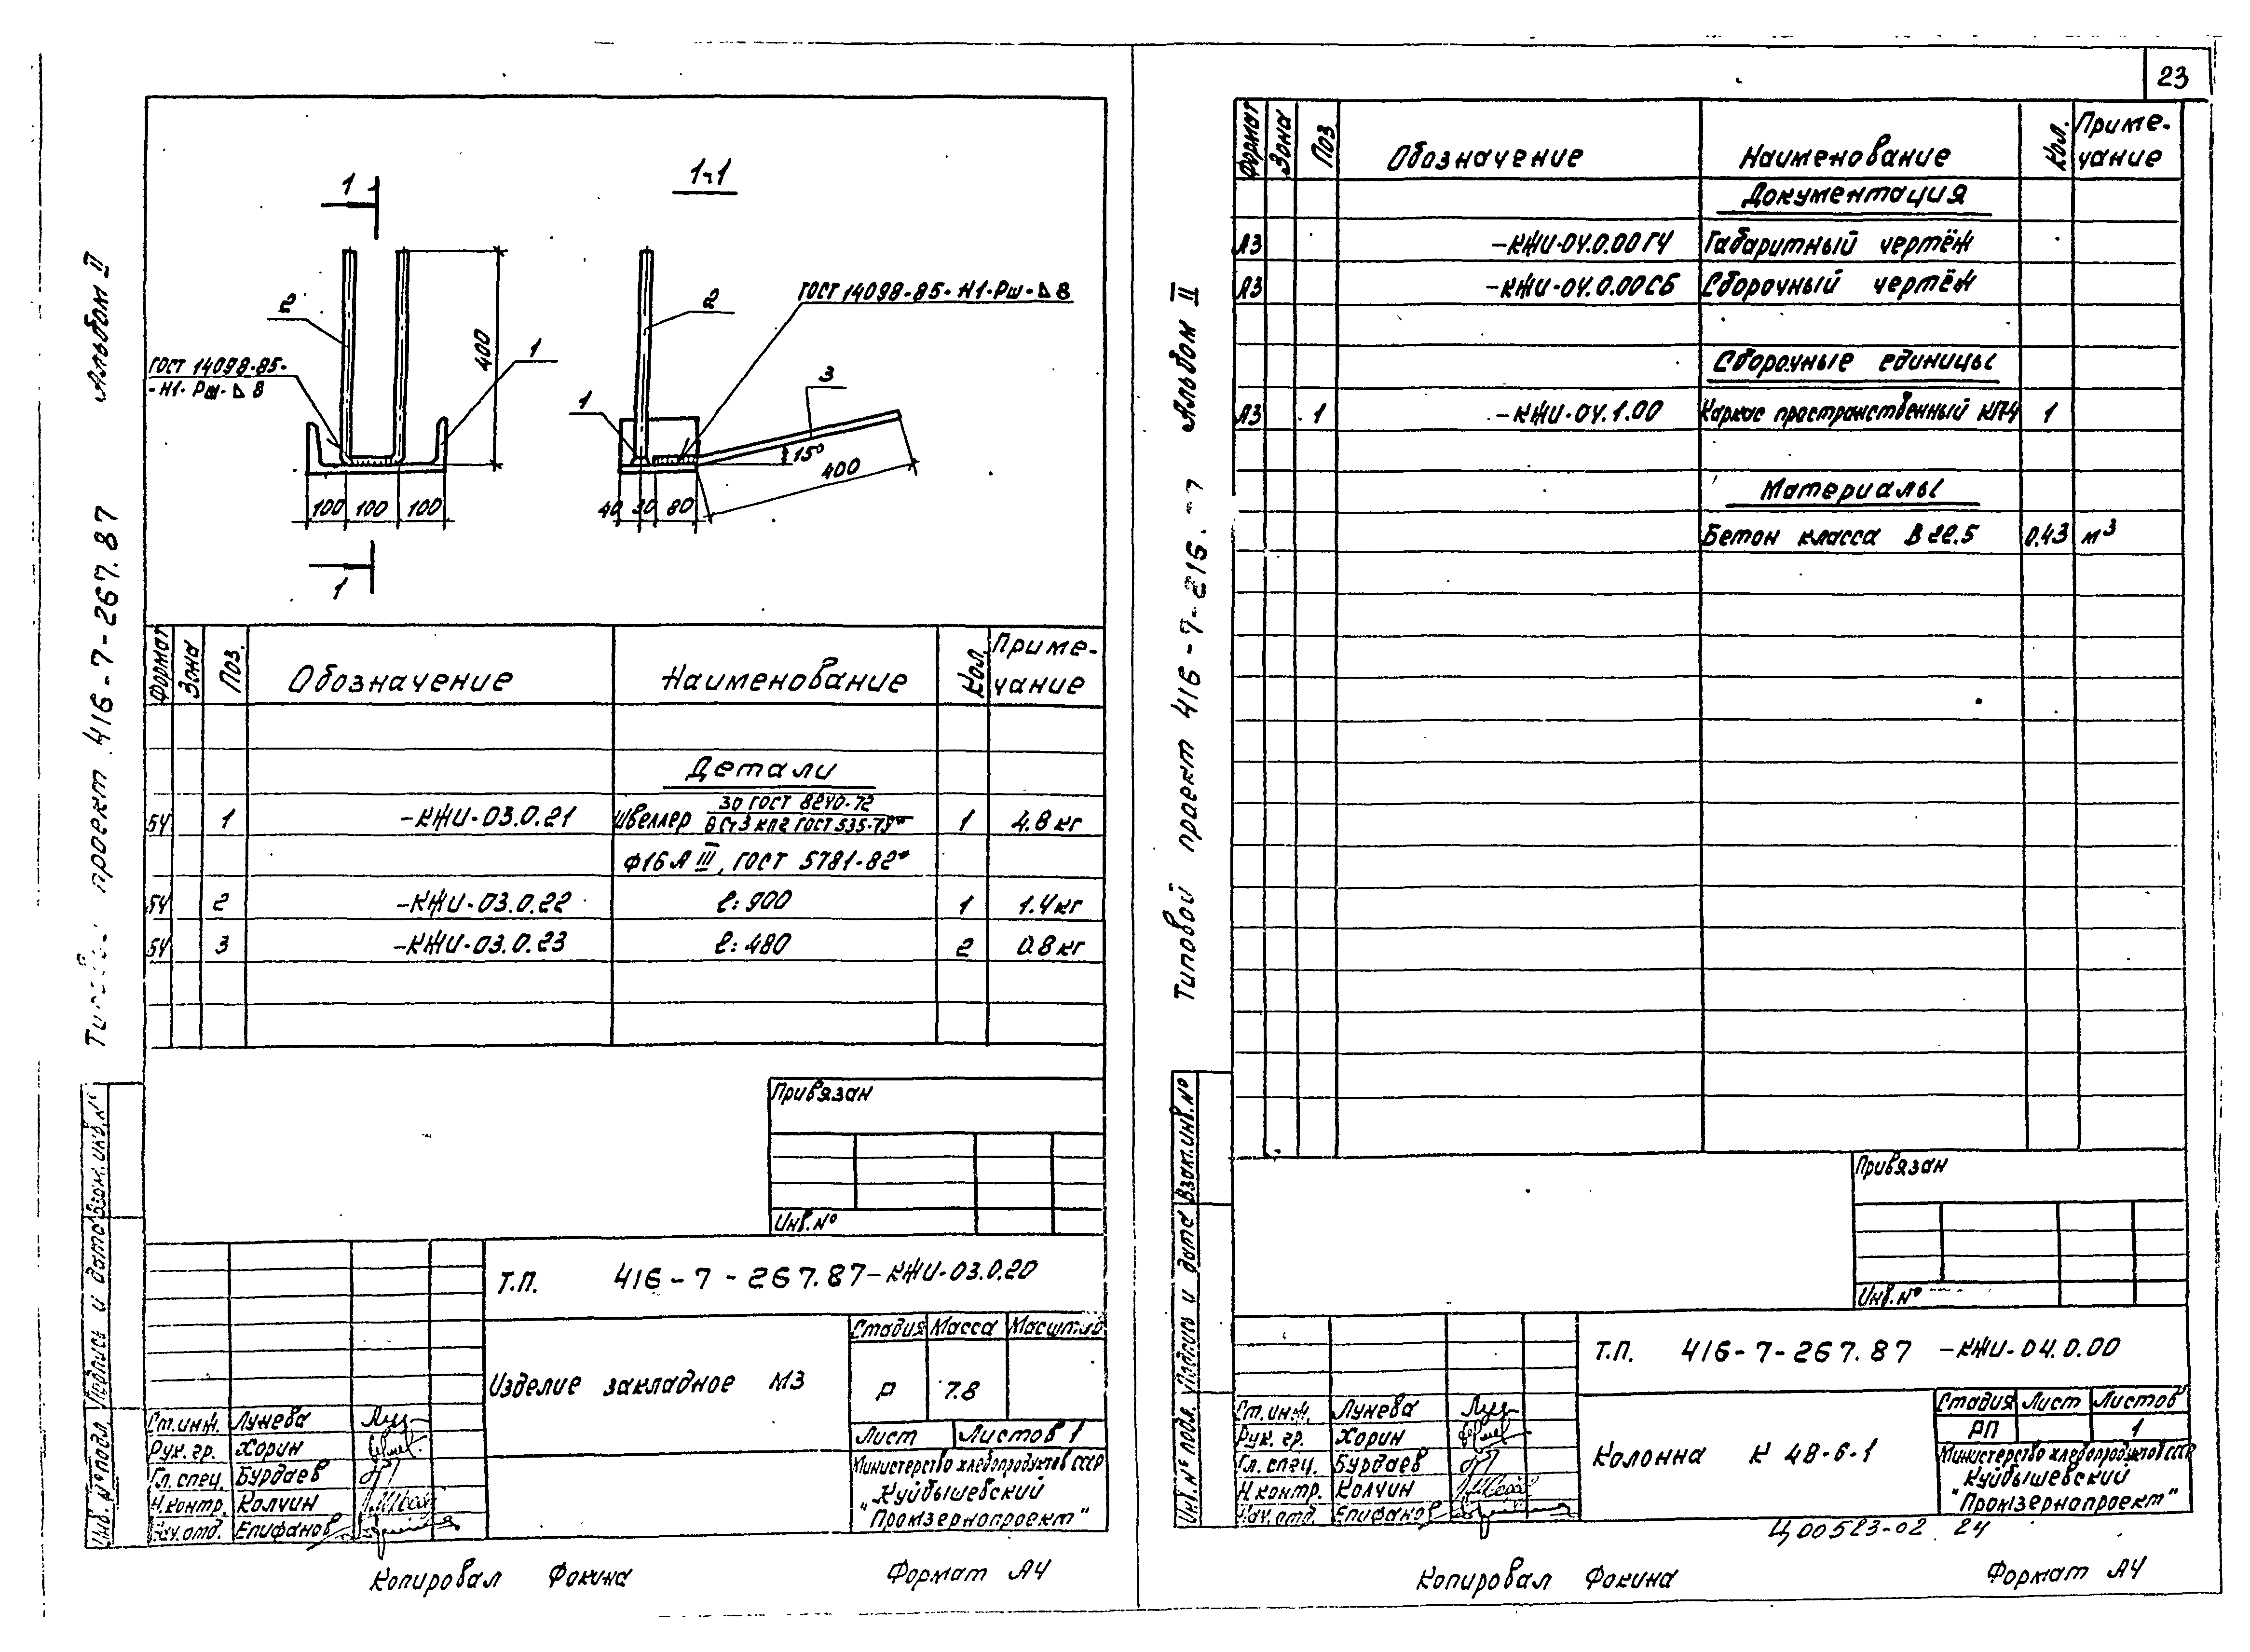 23
Альбом II
Типовой проект 416-7-267.87
1
1-1
2
ГОСТ 14098-85-
-Н1-Рш-Δ 8
400
1
100 100 100
1
2
ГОСТ 14098-85-Н1-Рш-Δ 8
3
1
15°
400
40 30 80
Формат Зона Поз. Обозначение Наименование Кол. Приме-
чание
Детали
БЧ 1 -КЖИ-03.0.21 Швеллер 30 ГОСТ 8240-72 1 4.8 кг
В Ст3 кп2 ГОСТ 535-79*
Ф16 А III, ГОСТ 5781-82*
БЧ 2 -КЖИ-03.0.22 ℓ: 900 1 1.4 кг
БЧ 3 -КЖИ-03.0.23 ℓ: 480 2 0.8 кг
Привязан
Инв. №
Т.П. 416-7-267.87-КЖИ-03.0.20
Изделие закладное М3
Стадия Масса Масштаб
Р 7.8
Лист Листов 1
Министерство хлебопродуктов СССР
Куйбышевский
"Промзернопроект"
Ст. инж. Лунева
Рук. гр. Хорин
Гл. спец. Бурдаев
Н контр. Колчин
Нач. отд. Епифанов
Инв. № подл. Подпись и дата Взам. инв. №
Копировал Фокина Формат А4
Альбом II
Типовой проект 416-7-216.
Формат Зона Поз Обозначение Наименование Кол. Приме-
чание
Документация
А3 -КЖИ-04.0.00ГЧ Габаритный чертёж
А3 -КЖИ-04.0.00СБ Сборочный чертёж
Сборочные единицы
А3 1 -КЖИ-04.1.00 Каркас пространственный КП-4 1
Материалы
Бетон класса В 22.5 0.43 м³
Привязан
Инв. №
Т.П. 416-7-267.87 -КЖИ-04.0.00
Колонна К 48-6-1
Стадия Лист Листов
РП 1
Министерство хлебопродуктов СССР
Куйбышевский
"Промзернопроект"
Ст. инж. Лунева
Рук. гр. Хорин
Гл. спец. Бурдаев
Н контр. Колчин
Нач. отд. Епифанов
Инв. № подл. Подпись и дата Взам. инв. №
Ц00523-02 24
Копировал Фокина Формат А4